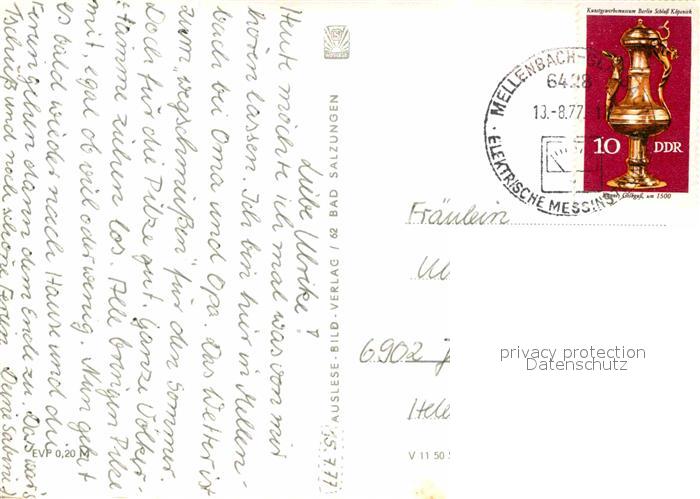 Liebe Ulrike!
Heute möchte ich mal was von mir
hören lassen. Ich bin hier in Mellen-
bach bei Oma und Opa. Das Wetter ist
zum "wegschmeißen" für den Sommer.
Doch für die Pilze gut. Ganze Völker-
stämme ziehen los. Alle bringen Pilze
mit, egal ob viel oder wenig. Nun geht
es bald wieder nach Hause und die
Ferien gehen dann dem Ende zu. Das wär's
Tschüß und noch schöne Ferien Deine Sabine
EVP 0,20 M
AUSLESE-BILD-VERLAG / 62 BAD SALZUNGEN
V 11 50
Kunstgewerbemuseum Berlin Schloß Köpenick
10 DDR
um 1500
MELLENBACH-
6428
ELEKTRISCHE MESSIN
Fräulein
6902
privacy protection
Datenschutz